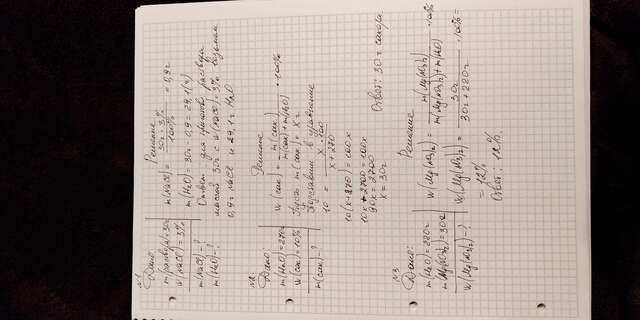 №1
Дано:
m(раствора)=30г
W(NaCl)=3%
m(NaCl)-?
m(H₂O)-?
Решение
m(NaCl) = 30г·3% / 100% = 0,9г
m(H₂O) = 30г-0,9г = 29,1(г)
Ответ: для приготов. раствора
массой 30г с W(NaCl)=3% возьмем
0,9г NaCl и 29,1г H₂O
№2
Дано:
m(H₂O)=270г
W(сах)=10%
m(сах)-?
Решение
W(сах) = m(сах) / m(сах)+m(H₂O) · 100%
Пусть m(сах) = x г
Подставим в уравнение
10 = x·100 / x+270
10(x+270)=100x
10x+2700=100x
90x=2700
x=30г
Ответ: 30г сахара
№3
Дано:
m(H₂O)=220г
m(Mg(NO₃)₂)=30г
W(Mg(NO₃)₂)-?
Решение
W(Mg(NO₃)₂) = m(Mg(NO₃)₂) / m(Mg(NO₃)₂)+m(H₂O) · 100%
W(Mg(NO₃)₂) = 30г / 30г+220г · 100% =
= 12%
Ответ: 12%.